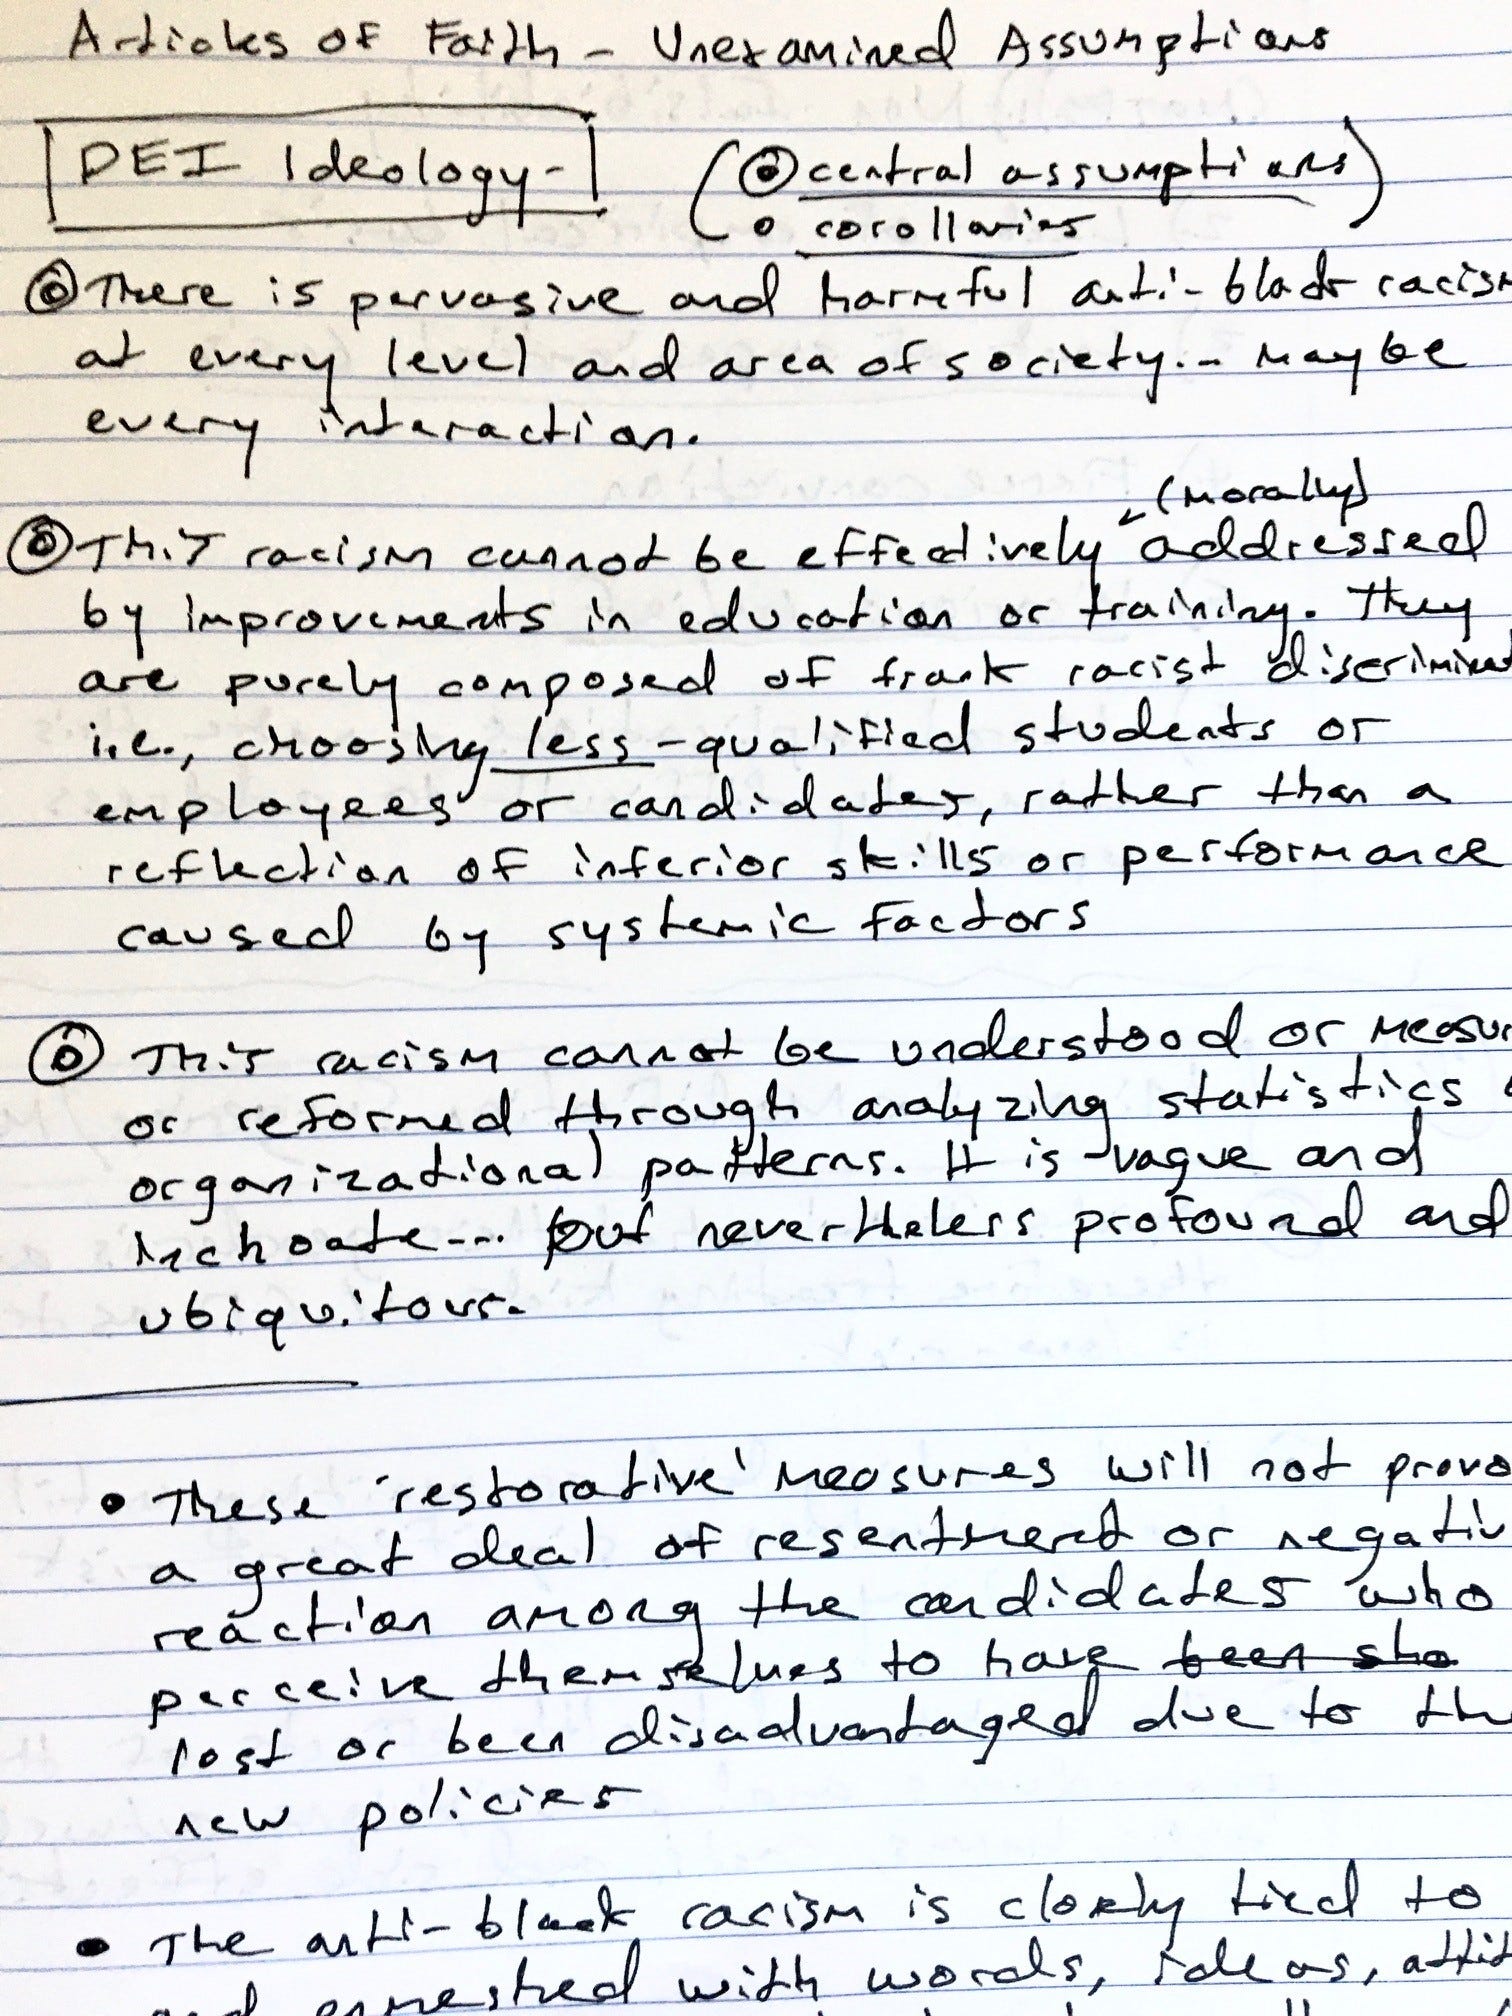 Articles of Faith - Unexamined Assumptions
DEI Ideology-
(⦿ central assumptions)
• corollaries
⦿ There is pervasive and harmful anti-black racism
at every level and area of society... maybe
every interaction.
(morally)
⦿ This racism cannot be effectively addressed
by improvements in education or training. They
are purely composed of frank racist discriminat
i.e., choosing less-qualified students or
employees or candidates, rather than a
reflection of inferior skills or performance
caused by systemic factors
⦿ This racism cannot be understood or measur
or reformed through analyzing statistics
organizational patterns. It is vague and
inchoate... but nevertheless profound and
ubiquitous.
• These 'restorative' measures will not provo
a great deal of resentment or negativ
reaction among the candidates who
perceive themselves to have been sho
lost or been disadvantaged due to th
new policies
• The anti-black racism is closely tied to
and enmeshed with words, ideas, attit